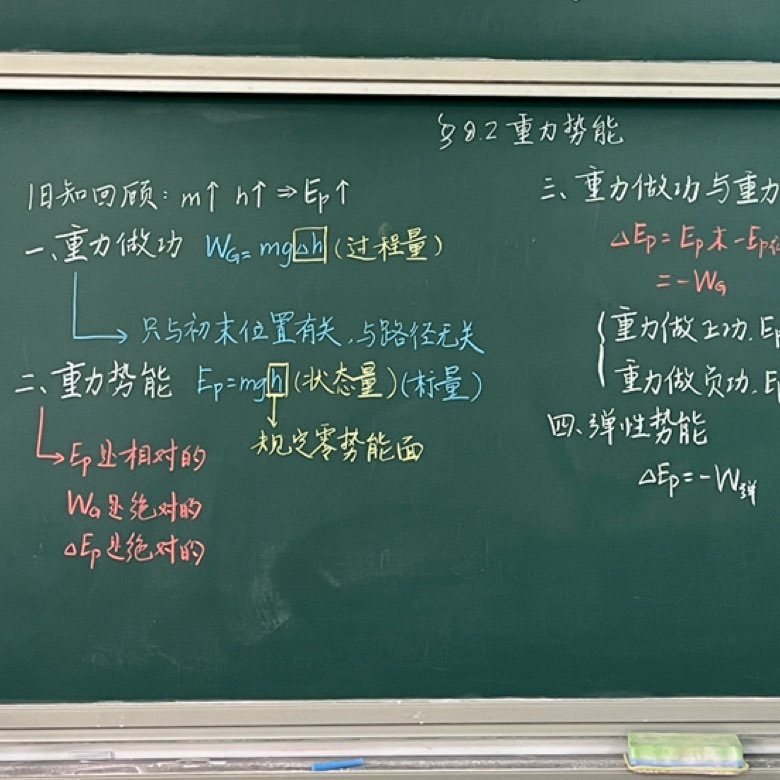 §8.2 重力势能
旧知回顾: m↑ h↑ ⇒ Ep↑
一、重力做功 WG=mgΔh (过程量)
只与初末位置有关,与路径无关
二、重力势能 Ep=mgh (状态量)(标量)
规定零势能面
Ep是相对的
WG是绝对的
ΔEp是绝对的
三、重力做功与重力
ΔEp=Ep末-Ep初
=-WG
重力做正功,Ep
重力做负功,Ep
四、弹性势能
ΔEp=-W弹